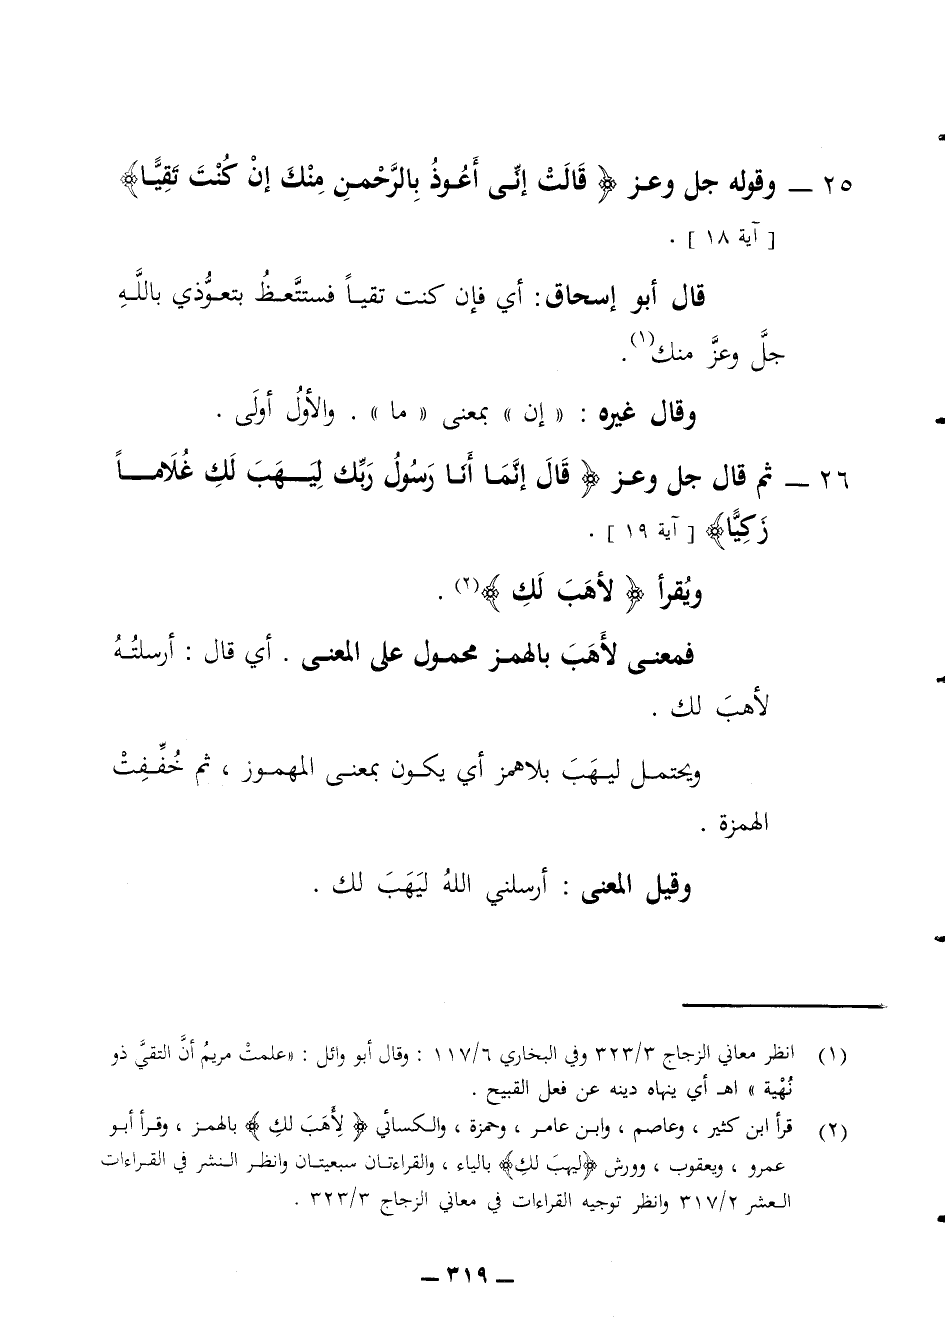 ٢٥ ــ وقوله جل وعـز ﴿ قَالَتْ إنّـى أَعُـوذُ بِالرَّحْمـنِ مِنْكَ إنْ كُنْتَ تَقيًّـا﴾
[ آية ١٨ ] .
قال أبو إسحاق : أي فإن كنت تقيـاً فستتَّعـظُ بتعـوُّذي باللَّـهِ
جلَّ وعزَّ منك(١).
وقال غيره : « إن » بمعنى « ما » . والأولُ أولَى .
٢٦ ــ ثم قال جل وعـز ﴿ قَالَ إنَّمَـا أَنَـا رَسُولُ رَبِّك لِيَـهَبَ لَكِ غُلَامـاً
زَكِيًّا﴾ [ آية ١٩ ] .
ويُقرأ ﴿ لأهَبَ لَكِ ﴾(٢) .
فمعنـى لأَهَبَ بالهمـز محمـول على المعنـى . أي قال : أرسلتُـهُ
لأهبَ لك .
ويحتمـل ليـهَبَ بلاهمز أي يكـون بمعنـى المهمـوز ، ثم خُفِّـفِتْ
الهمزة .
وقيل المعنى : أرسلني اللهُ ليَهَبَ لك .
(١) انظر معاني الزجاج ٣٢٣/٣ وفي البخاري ١١٧/٦ : وقال أبو وائل : «علمتْ مريمُ أنَّ التقيَّ ذو
نُهْية » اهـ أي ينهاه دينه عن فعل القبيح .
(٢) قرأ ابن كثير ، وعاصم ، وابـن عامـر ، وحمزة ، والـكسائي ﴿ لِأَهَبَ لكِ ﴾ بالهمـز ، وقـرأ أبـو
عمرو ، ويعقوب ، وورش ﴿ليهبَ لكِ﴾ بالياء ، والقراءتـان سبعيتـان وانظـر النـشر في القـراءات
العـشر ٣١٧/٢ وانظر توجيه القراءات في معاني الزجاج ٣٢٣/٣ .
ــ ٣١٩ ــ